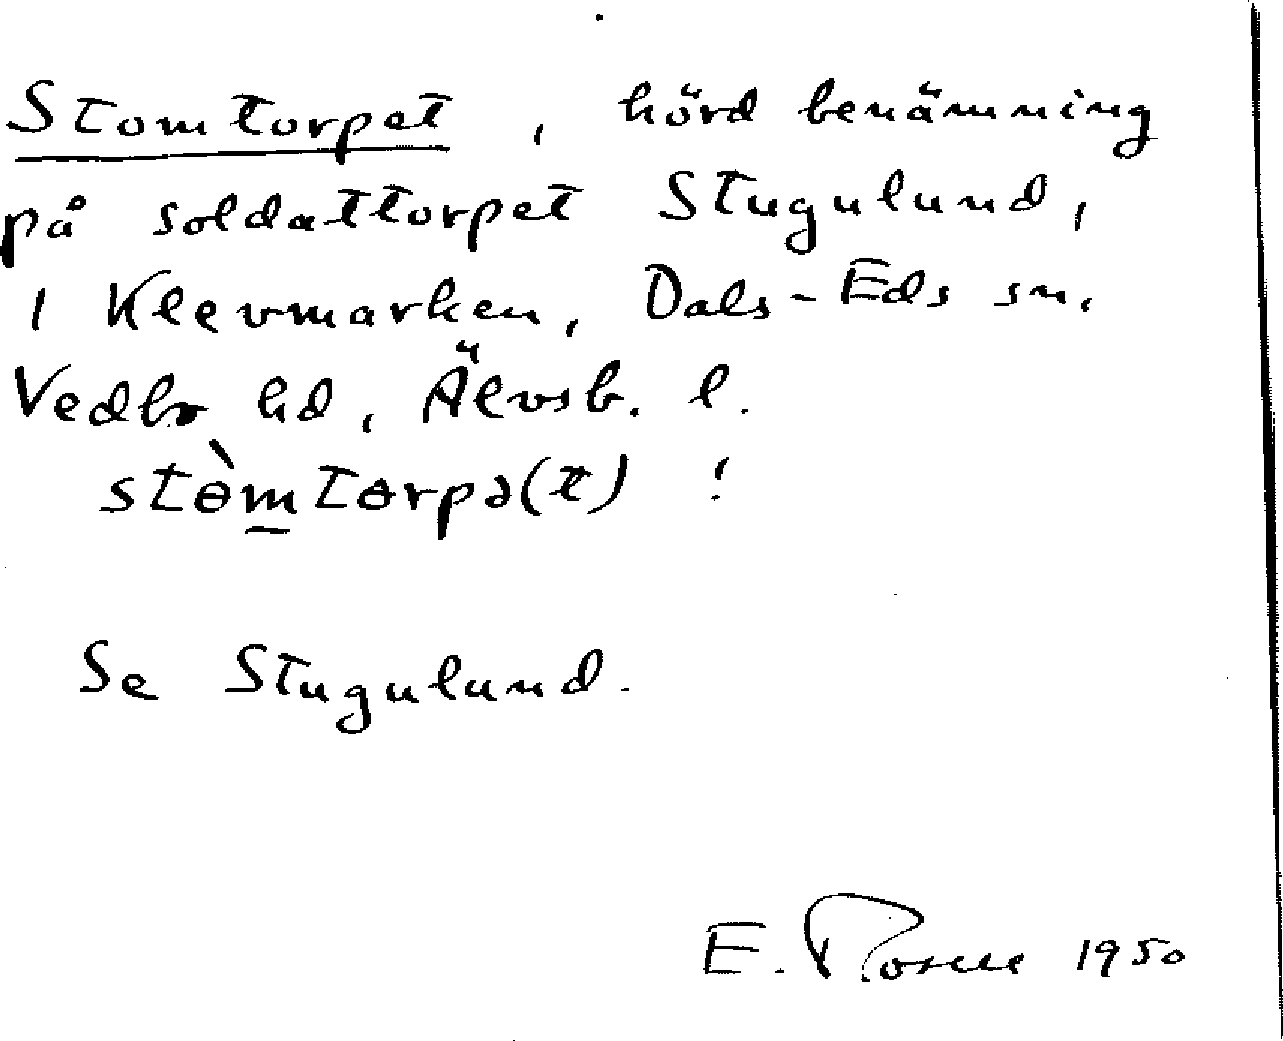 Stomtorpet, hörd benämning
på soldattorpet Stugulund,
i Klevmarken, Dals-Eds sn.
Vedbo hd, Älvsb. l.
stɵ̀m̲tɵrpə(t) !
Se Stugulund.
E. 1950